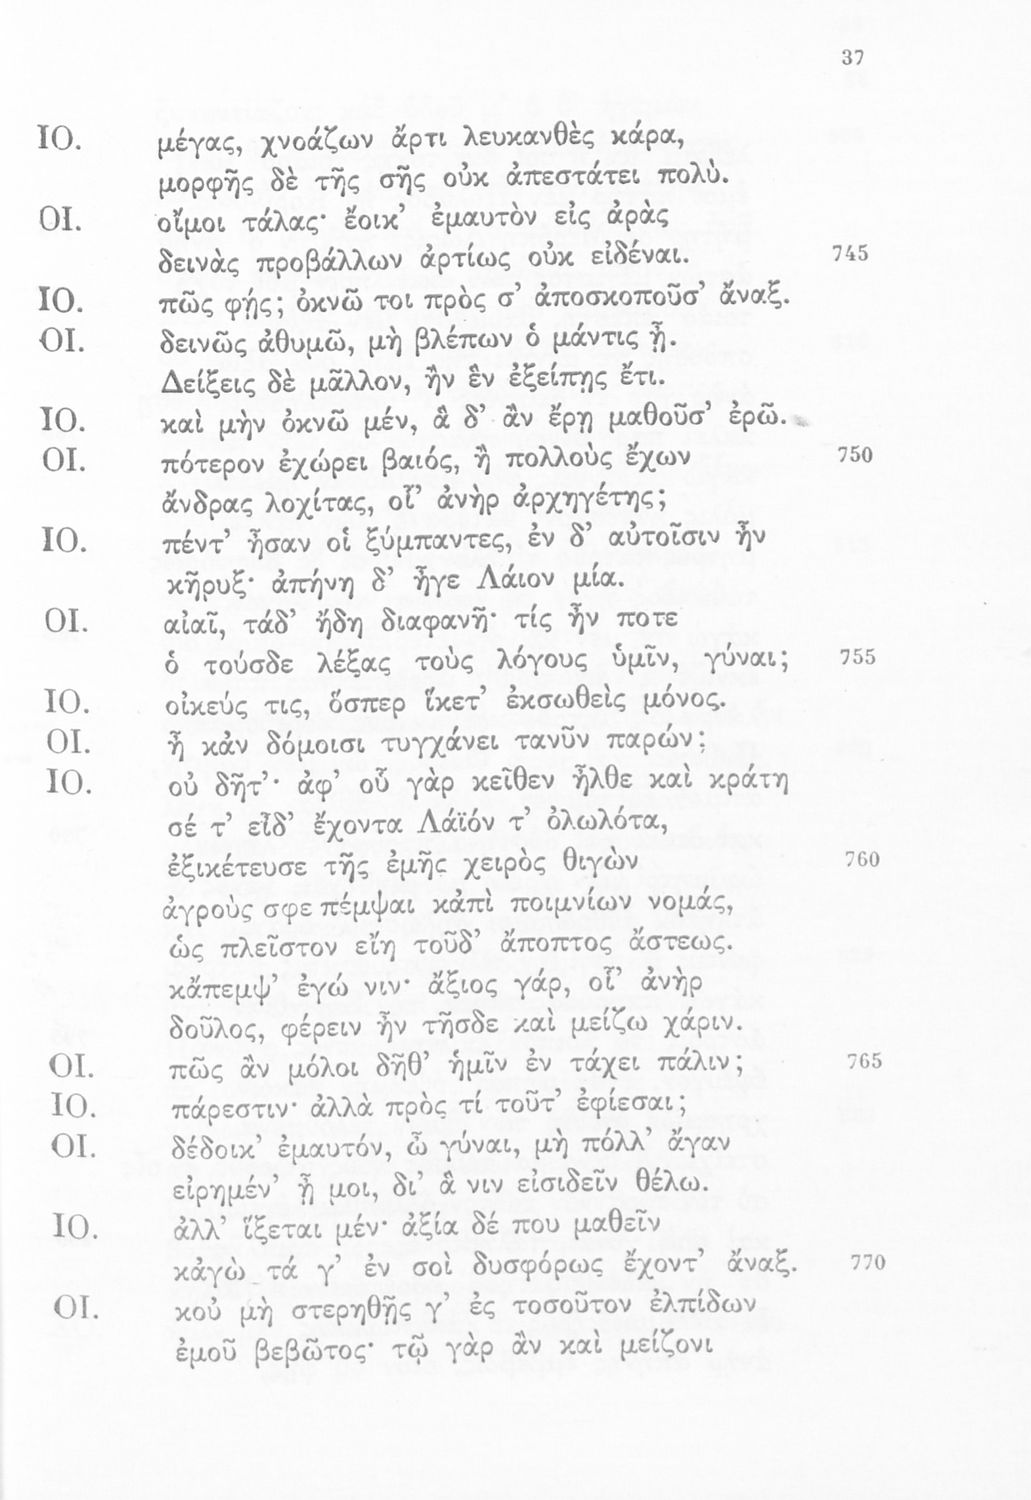 37
ΙΟ. μέγας, χνοάζων ἄρτι λευκανθὲς κάρα,
μορφῆς δὲ τῆς σῆς οὐκ ἀπεστάτει πολὺ.
ΟΙ. οἴμοι τάλας· ἔοικ’ ἐμαυτὸν εἰς ἀρὰς
δεινὰς προβάλλων ἀρτίως οὐκ εἰδέναι. 745
ΙΟ. πῶς φῄς; ὀκνῶ τοι πρὸς σ’ ἀποσκοποῦσ’ ἄναξ.
ΟΙ. δεινῶς ἀθυμῶ, μὴ βλέπων ὁ μάντις ᾖ.
Δείξεις δὲ μᾶλλον, ἢν ἓν ἐξείπῃς ἔτι.
ΙΟ. καὶ μὴν ὀκνῶ μέν, ἃ δ’ ἂν ἔρῃ μαθοῦσ’ ἐρῶ.
ΟΙ. πότερον ἐχώρει βαιός, ἢ πολλοὺς ἔχων 750
ἄνδρας λοχίτας, οἷ’ ἀνὴρ ἀρχηγέτης;
ΙΟ. πέντ’ ἦσαν οἱ ξύμπαντες, ἐν δ’ αὐτοῖσιν ἦν
κῆρυξ· ἀπήνη δ’ ἦγε Λάιον μία.
ΟΙ. αἰαῖ, τάδ’ ἤδη διαφανῆ· τίς ἦν ποτε
ὁ τούσδε λέξας τοὺς λόγους ὑμῖν, γύναι; 755
ΙΟ. οἰκεύς τις, ὅσπερ ἵκετ’ ἐκσωθεὶς μόνος.
ΟΙ. ἦ κἀν δόμοισι τυγχάνει τανῦν παρών;
ΙΟ. οὐ δῆτ’· ἀφ’ οὗ γὰρ κεῖθεν ἦλθε καὶ κράτη
σέ τ’ εἶδ’ ἔχοντα Λάϊόν τ’ ὀλωλότα,
ἐξικέτευσε τῆς ἐμῆς χειρὸς θιγὼν 760
ἀγροὺς σφε πέμψαι κἀπὶ ποιμνίων νομάς,
ὡς πλεῖστον εἴη τοῦδ’ ἄποπτος ἄστεως.
κἄπεμψ’ ἐγώ νιν· ἄξιος γάρ, οἷ’ ἀνὴρ
δοῦλος, φέρειν ἦν τῆσδε καὶ μείζω χάριν.
ΟΙ. πῶς ἂν μόλοι δῆθ’ ἡμῖν ἐν τάχει πάλιν; 765
ΙΟ. πάρεστιν· ἀλλὰ πρὸς τί τοῦτ’ ἐφίεσαι;
ΟΙ. δέδοικ’ ἐμαυτόν, ὦ γύναι, μὴ πόλλ’ ἄγαν
εἰρημέν’ ᾖ μοι, δι’ ἃ νιν εἰσιδεῖν θέλω.
ΙΟ. ἀλλ’ ἵξεται μέν· ἀξία δέ που μαθεῖν
κἀγὼ τά γ’ ἐν σοὶ δυσφόρως ἔχοντ’ ἄναξ. 770
ΟΙ. κοὐ μὴ στερηθῇς γ’ ἐς τοσοῦτον ἐλπίδων
ἐμοῦ βεβῶτος· τῷ γὰρ ἂν καὶ μείζονι